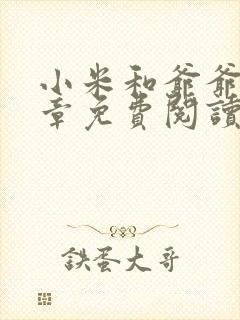 小米和爺爺
章免費閱讀
鉄蛋大哥